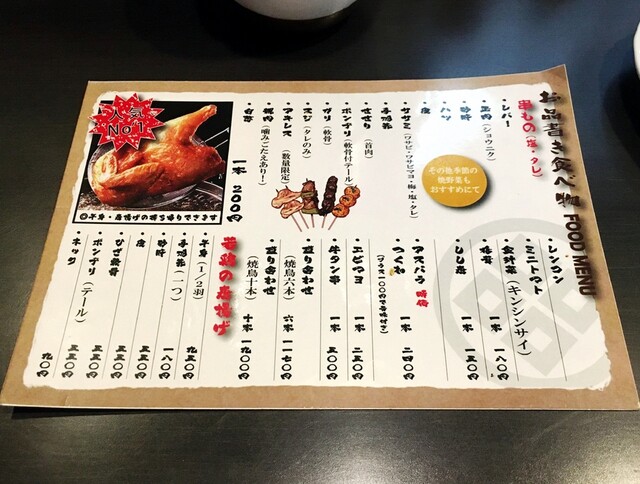 お品書き食べ物 FOOD MENU
串もの（塩・タレ）
・レバー
・玉肉（ショウニク）
・砂肝
・ハツ
・皮
・ササミ（ワサビ・ワサビマヨ・梅・塩・タレ）
・手羽先
・せせり（首肉）
・ボンヂリ（軟骨付テール）
・ガリ（軟骨）
・スジ（タレのみ）
・アキレス（数量限定）
・親肉（噛みごたえあり！）
・白葱
一本 200円
その他季節の
焼野菜も
おすすめにて
人気
No1
◎半身・唐揚げの持ち帰りできます
・レンコン
・ミニトマト
・金針菜（キンシンサイ）
・椎茸 一本 一八〇円
・しし唐 一本 一五〇円
・アスパラ 時価
・つくね 一本 二四〇円
（プラス一〇〇円で黄味付き）
・エビマヨ 一本 二五〇円
・牛タン串 一本 三五〇円
・盛り合わせ（焼鳥六本） 六本 一一七〇円
・盛り合わせ（焼鳥十本） 十本 一九〇〇円
若鶏の唐揚げ
・半身（1／2羽） 九五〇円
・手羽先（一つ） 一八〇円
・砂肝 五五〇円
・皮 五五〇円
・ひざ軟骨 五五〇円
・ボンヂリ（テール） 五五〇円
・ネック